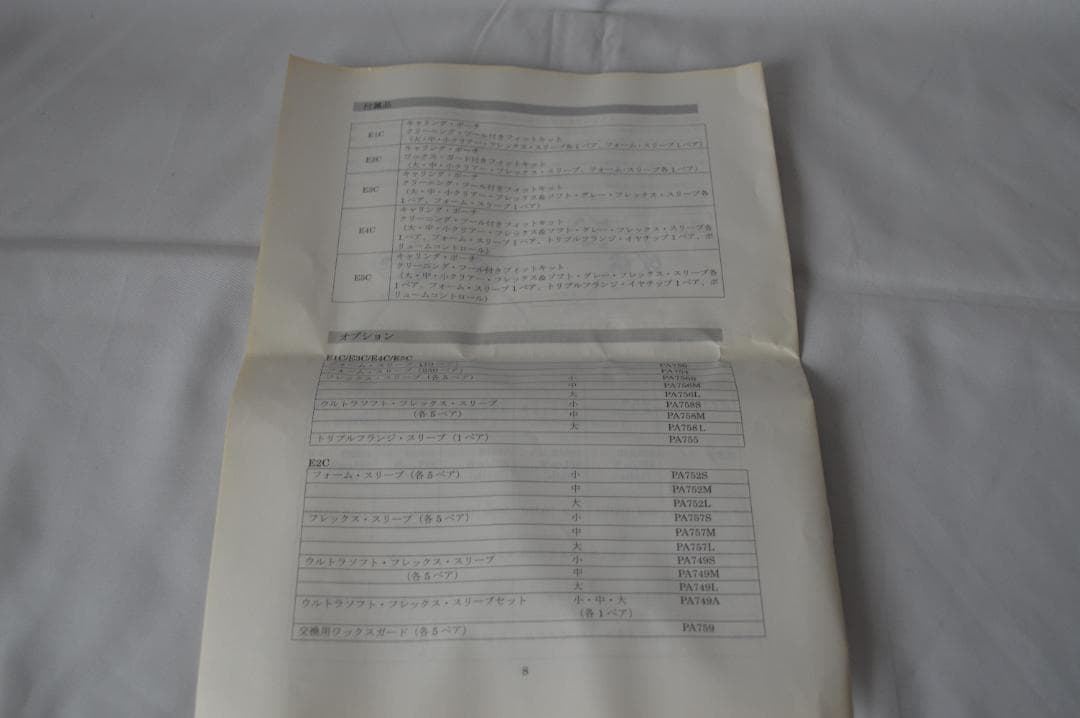 付属品
E1C
キャリング・ポーチ
クリーニング・ツール付きフィットキット
(大・中・小クリアー・フレックス・スリーブ各1ペア、フォーム・スリーブ1ペア)
E2C
キャリング・ポーチ
ワックス・ガード付きフィットキット
(大・中・小クリアー・フレックス・スリーブ、フォーム・スリーブ各1ペア)
E3C
キャリング・ポーチ
クリーニング・ツール付きフィットキット
(大・中・小クリアー・フレックス&ソフト・グレー・フレックス・スリーブ各
1ペア、フォーム・スリーブ1ペア)
E4C
キャリング・ポーチ
クリーニング・ツール付きフィットキット
(大・中・小クリアー・フレックス&ソフト・グレー・フレックス・スリーブ各
1ペア、フォーム・スリーブ1ペア、トリプルフランジ・イヤチップ1ペア、ボ
リュームコントロール)
E5C
キャリング・ポーチ
クリーニング・ツール付きフィットキット
(大・中・小クリアー・フレックス&ソフト・グレー・フレックス・スリーブ各
1ペア、フォーム・スリーブ1ペア、トリプルフランジ・イヤチップ1ペア、ボ
リュームコントロール)
オプション
E1C/E3C/E4C/E5C
フォーム・スリーブ
フォーム・スリーブ (250ペア) PA754
フレックス・スリーブ (各5ペア) 小 PA756S
中 PA756M
大 PA756L
ウルトラソフト・フレックス・スリーブ 小 PA758S
(各5ペア) 中 PA758M
大 PA758L
トリプルフランジ・スリーブ (1ペア) PA755
E2C
フォーム・スリーブ (各5ペア) 小 PA752S
中 PA752M
大 PA752L
フレックス・スリーブ (各5ペア) 小 PA757S
中 PA757M
大 PA757L
ウルトラソフト・フレックス・スリーブ 小 PA749S
(各5ペア) 中 PA749M
大 PA749L
ウルトラソフト・フレックス・スリーブセット 小・中・大 PA749A
(各1ペア)
交換用ワックスガード (各5ペア) PA759
8